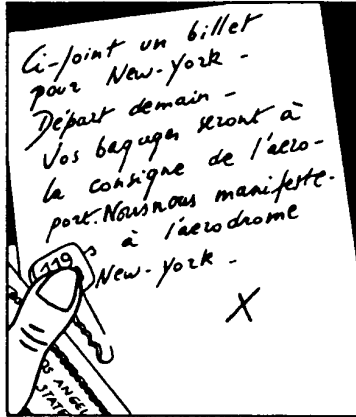 Ci-joint un billet
pour New-York -
Départ demain -
Vos bagages seront à
la consigne de l'aéro-
port. Nous nous manifeste-
à l'aérodrome
New-York -
X
119
OS ANGEL
STATE